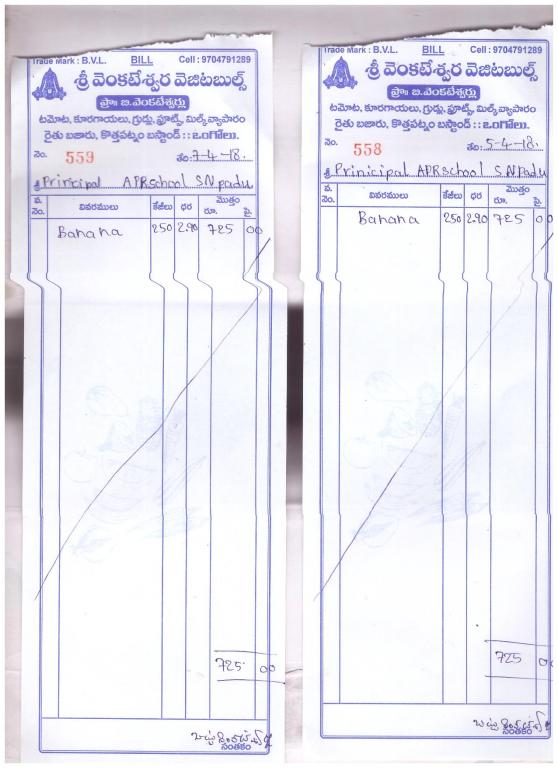 Trade Mark : B.V.L. BILL Cell : 9704791289
శ్రీ వెంకటేశ్వర వెజిటబుల్స్
ప్రొః బి.వెంకటేశ్వర్లు
టమోట, కూరగాయలు, గ్రుడ్లు, ఫ్రూట్స్, మిల్క్ వ్యాపారం
రైతు బజారు, కొత్తపట్నం బస్టాండ్ :: ఒంగోలు.
నెం. 559 తం: 7-4-18.
శ్రీ Prinicipal APRschool S.N padu
వ. నెం. వివరములు కేజీలు ధర మొత్తం రూ. పై.
Banana 250 2.90 725 00
725 00
సంతకం
Trade Mark : B.V.L. BILL Cell : 9704791289
శ్రీ వెంకటేశ్వర వెజిటబుల్స్
ప్రొః బి.వెంకటేశ్వర్లు
టమోట, కూరగాయలు, గ్రుడ్లు, ఫ్రూట్స్, మిల్క్ వ్యాపారం
రైతు బజారు, కొత్తపట్నం బస్టాండ్ :: ఒంగోలు.
నెం. 558 తం: 5-4-18.
శ్రీ Prinicipal APRschool S.N padu
వ. నెం. వివరములు కేజీలు ధర మొత్తం రూ. పై.
Banana 250 2.90 725 00
725 00
సంతకం